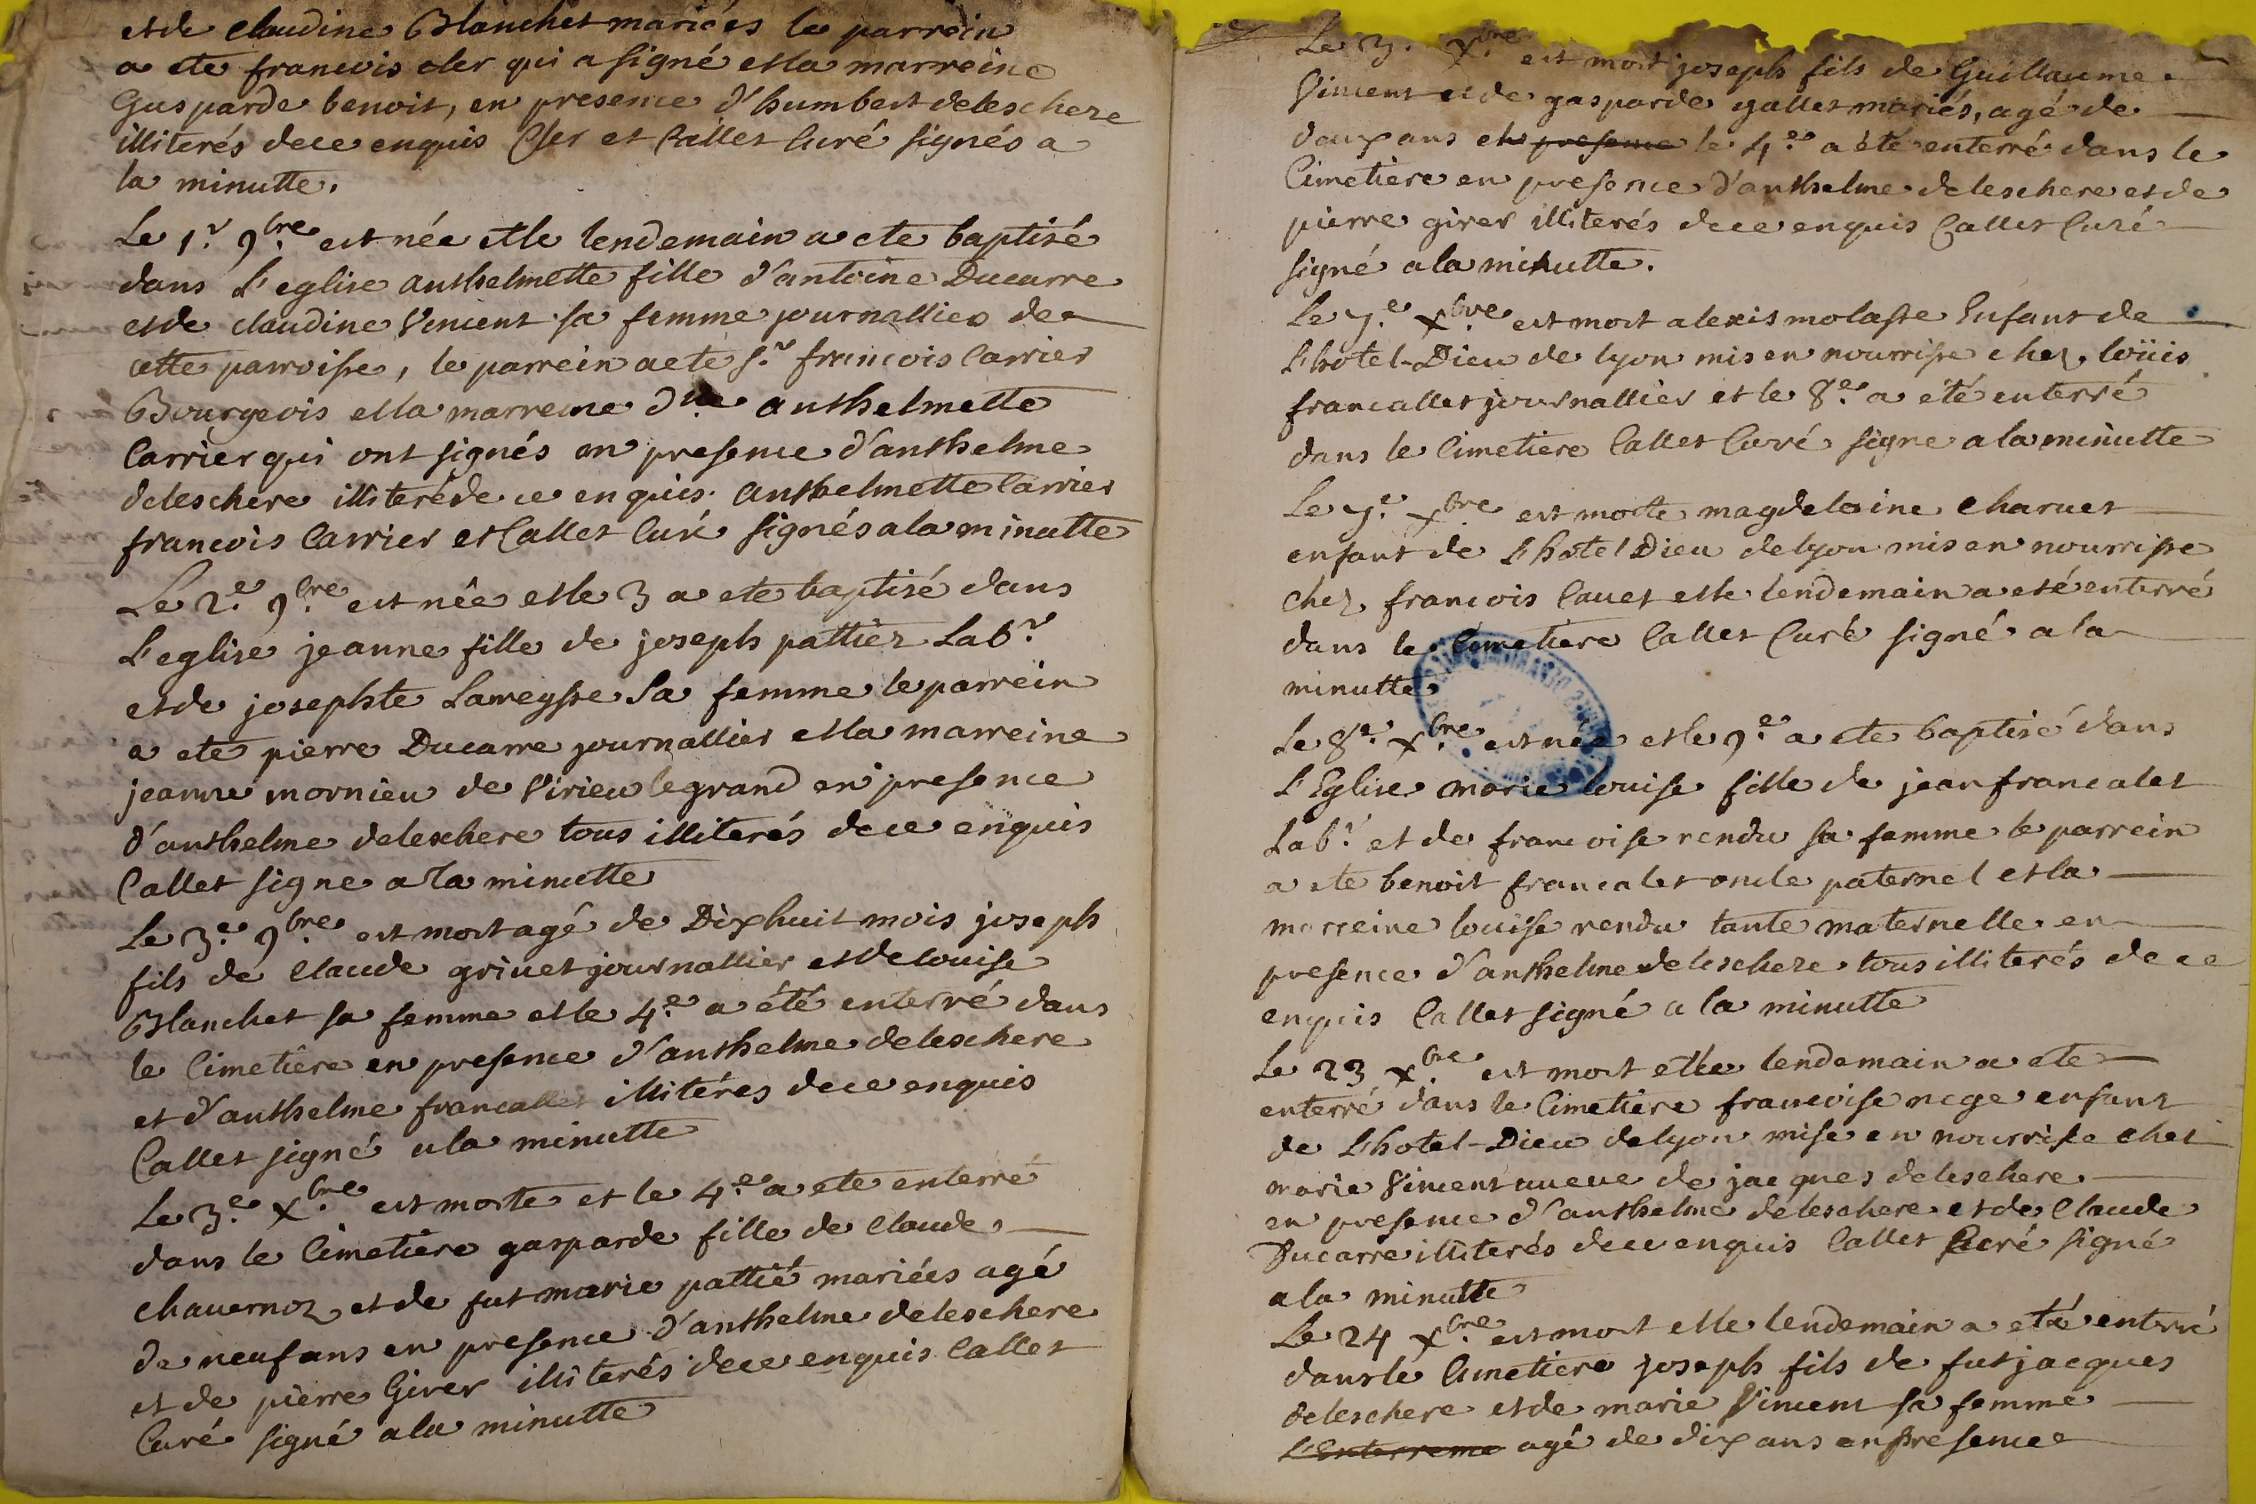 et de claudine Blanchet mariées le parrein
a ete francois cler qui a signé et la marreine
Gasparde benoit, en presence d'humbert deleschere
illiterés de ce enquis Cler et Callet Curé signés a
la minutte.
Le 1.r 9bre est née et le lendemain a ete baptisé
dans L'eglise anthelmette fille d'antoine Ducarre
et de claudine Vincent sa femme journallier de
cette parroisse, le parrein a ete s.r francois Carrier
Bourgeois et la marreine dlle anthelmette
Carrier qui ont signés en presence d'anthelme
deleschere illiteré de ce enquis anthelmette Carrier
francois Carrier et Callet Curé signés a la minutte
Le 2.e 9bre est née et le 3 a ete baptisé dans
L'eglise jeanne fille de joseph pattier Lab.r
et de josephte Lareysse sa femme le parrein
a ete pierre Ducarre journallier et la marreine
jeanne mornieu de Virieu le grand en presence
d'anthelme deleschere tous illiterés de ce enquis
Callet signe a la minutte
Le 3.e 9bre est mort agé de Dixhuit mois joseph
fils de Claude grinet journallier et de louise
Blanchet sa femme et le 4.e a été enterré dans
le Cimetière en presence d'anthelme deleschere
et d'anthelme francallet illitéres de ce enquis
Callet signé a la minutte
Le 3.e xbre est morte et le 4.e a ete enterré
dans le Cimetière gasparde fille de Claude
Chavernoz et de fut marie pattié mariées agé
de neuf ans en presence d'anthelme deleschere
et de pierre Girer illiterés de ce enquis Callet
Curé signé a la minutte
Le 3. xbre est mort joseph fils de Guillaume
Vincent et de gasparde gallet mariés, agé de
deux ans et presence le 4.e a été enterré dans le
Cimetière en presence d'anthelme deleschere et de
pierre girer illiterés de ce enquis Callet Curé
signé a la minutte.
Le 7.e xbre est mort alexis molasse Enfant de
L'hotel-Dieu de lyon mis en nourrisse chez loüis
francallet journallier et le 8.e a été enterré
dans le Cimetiere Callet Curé signe a la minutte
Le 7.e xbre est morte magdelaine charvet
enfant de L'hotel Dieu de lyon mis en nourrisse
chez francois Cavet et le lendemain a eté enterré
dans le Cimetiere Callet Curé signé a la
minutte
Le 8.e xbre est née et le 9.e a ete baptisé dans
L'Eglise marie louise fille de jean francalet
Lab.r et de francoise rendu sa femme le parrein
a ete benoit francalet oncle paternel et la
marreine louïse rendu tante maternelle en
presence d'anthelme deleschere tous illiterés de ce
enquis Callet signé a la minutte
Le 23 xbre est mort et le lendemain a ete
enterré dans le Cimetiere francoise nege enfant
de L'hotel-Dieu de lyon mise en nourrisse chet
marie Vincent vueve de jacques deleschere
en presence d'anthelme deleschere et de Claude
Ducarre illiterés de ce enquis Callet Curé signé
a la minutte
Le 24 xbre est mort et le lendemain a eté enterré
dans le Cimetiere joseph fils de fut jacques
deleschere et de marie Vincent sa femme
L'Enterreme agé de dix ans en presence